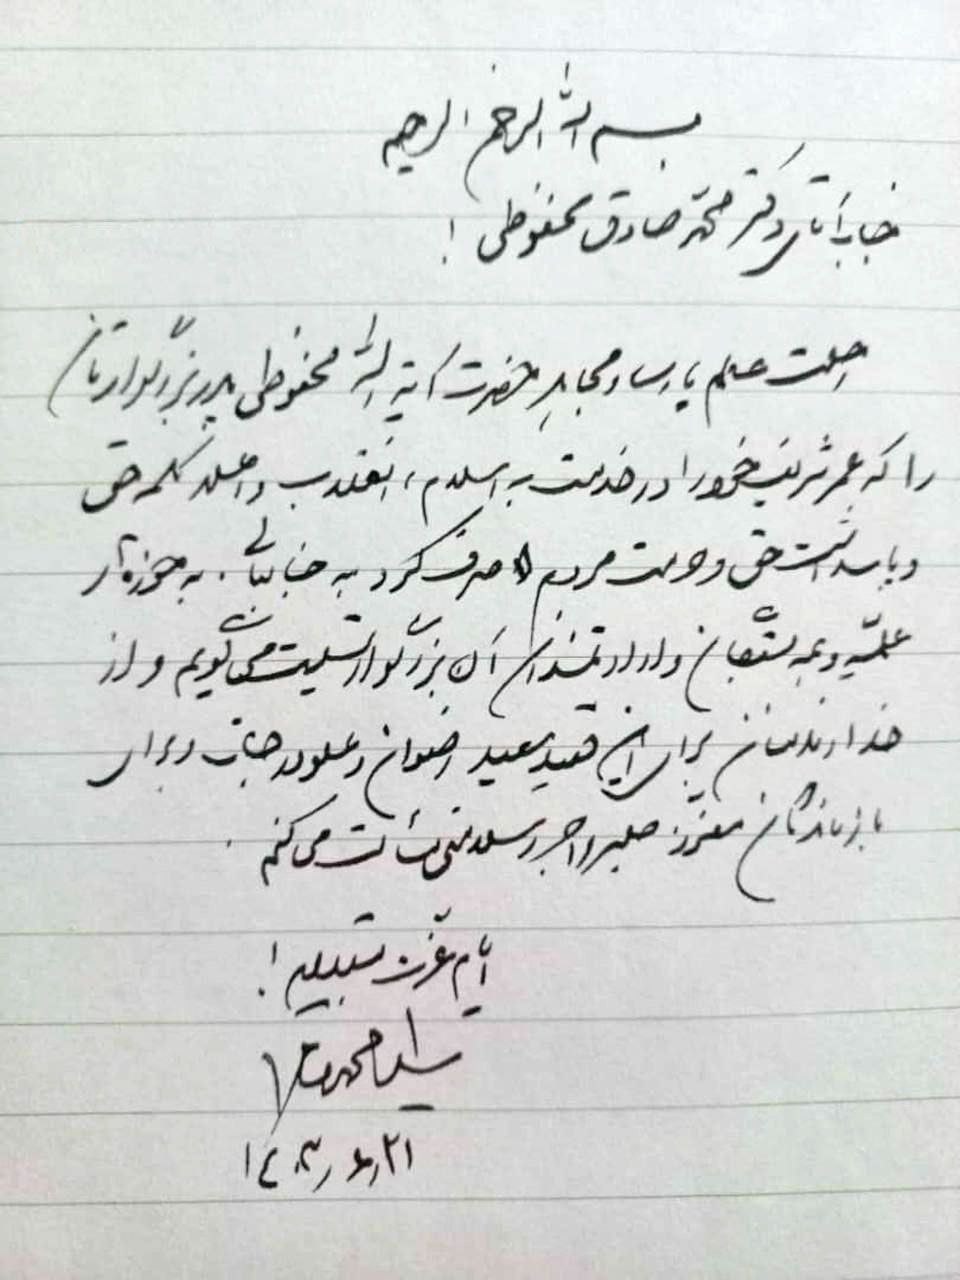 بسم الله الرحمن الرحیم
جناب آقای دکتر محمد صادق محفوظی!
رحلت عالم پارسا و مجاهد حضرت آیة الله محفوظی پدر بزرگوارتان
را که عمر شریف خود را در خدمت به اسلام، انقلاب و اعلاء کلمه حق
و پاسداشت حق و حرمت مردم صرف کرد به جنابعالی، به حوزه‌های
علمیّه و به همه بستگان و ارادتمندان آن بزرگوار تسلیت می‌گویم و از
خداوند منان برای این فقید سعید رضوان و علو درجات و برای
بازماندگان معزّز صبر و اجر و سلامتی مسألت می‌کنم.
ایام عزت مستدام!
سید محمد خاتمی
۱۴۰۳٫۶٫۲۱